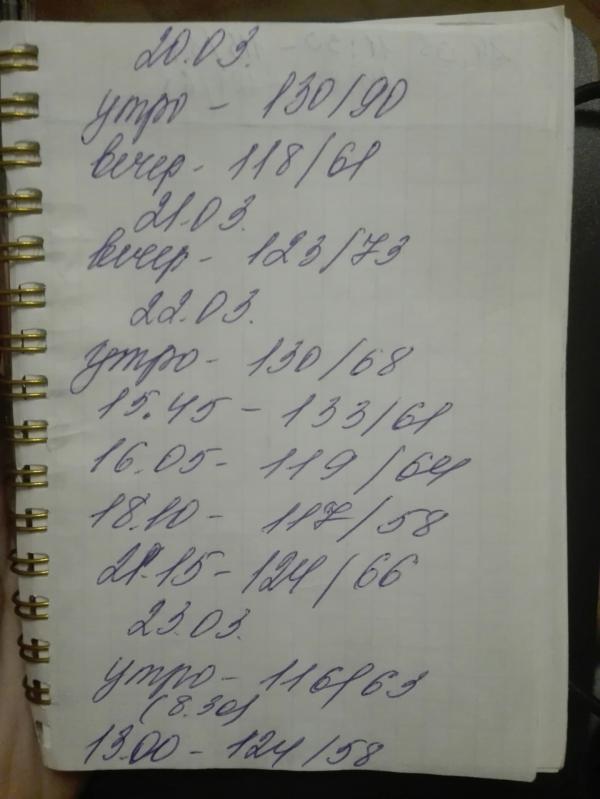 20.03.
утро - 130/90
вечер - 118/61
21.03.
вечер - 123/73
22.03.
утро - 130/68
15.45 - 133/61
16.05 - 119/64
18.10 - 117/58
21.15 - 124/66
23.03.
утро - 116/63
(8.30)
13.00 - 124/58